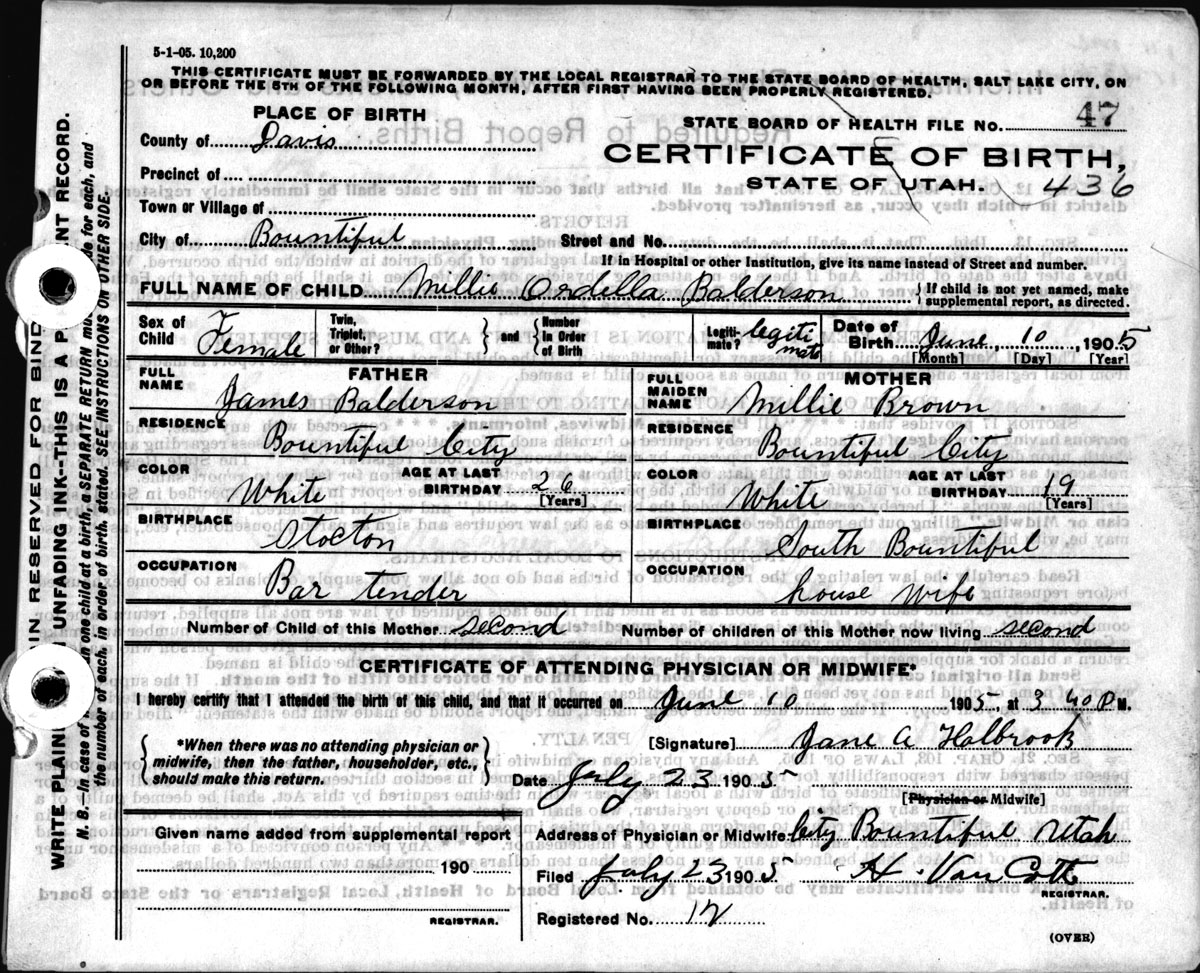 5-1-05. 10,200
THIS CERTIFICATE MUST BE FORWARDED BY THE LOCAL REGISTRAR TO THE STATE BOARD OF HEALTH, SALT LAKE CITY, ON
OR BEFORE THE 5TH OF THE FOLLOWING MONTH, AFTER FIRST HAVING BEEN PROPERLY REGISTERED.
PLACE OF BIRTH
STATE BOARD OF HEALTH FILE No. 47
County of Davis
CERTIFICATE OF BIRTH,
Precinct of
STATE OF UTAH. 436
Town or Village of
City of Bountiful Street and No.
If in Hospital or other Institution, give its name instead of Street and number.
FULL NAME OF CHILD Millie Ordella Balderson { If child is not yet named, make supplemental report, as directed.
Sex of Child Female Twin, Triplet, or Other? } and { Number in Order of Birth Legiti-mate? legiti mate Date of Birth June 10, 1905
[Month] [Day] [Year]
FATHER MOTHER
FULL NAME James Balderson FULL MAIDEN NAME Millie Brown
RESIDENCE Bountiful City RESIDENCE Bountiful City
COLOR White AGE AT LAST BIRTHDAY 26 [Years] COLOR White AGE AT LAST BIRTHDAY 19 [Years]
BIRTHPLACE Stocton BIRTHPLACE South Bountiful
OCCUPATION Bar tender OCCUPATION house Wife
Number of Child of this Mother second Number of children of this Mother now living second
CERTIFICATE OF ATTENDING PHYSICIAN OR MIDWIFE*
I hereby certify that I attended the birth of this child, and that it occurred on June 10 1905, at 3 40 P M.
{ *When there was no attending physician or midwife, then the father, householder, etc., should make this return. }
[Signature] Jane A Holbrook
Date July 23 1905
[Physician or Midwife]
Given name added from supplemental report
190
REGISTRAR.
Address of Physician or Midwife City Bountiful Utah
Filed July 23 1905 H. Van Cott
REGISTRAR.
Registered No. 12
(OVER)
IN RESERVED FOR BIND
WRITE PLAIN UNFADING INK--THIS IS A P NT RECORD.
N. B.—In case of an one child at a birth, a SEPARATE RETURN mu de for each, and
the number of each, in order of birth, stated. SEE INSTRUCTIONS ON OTHER SIDE.